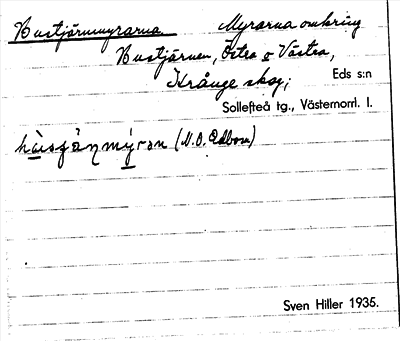 Hustjärnmyrarna Myrarna omkring
Hustjärnen, Östra o Västra,
Krånge skog; Eds s:n
Sollefteå tg., Västernorrl. l.
(N.O. Edbom)
Sven Hiller 1935.